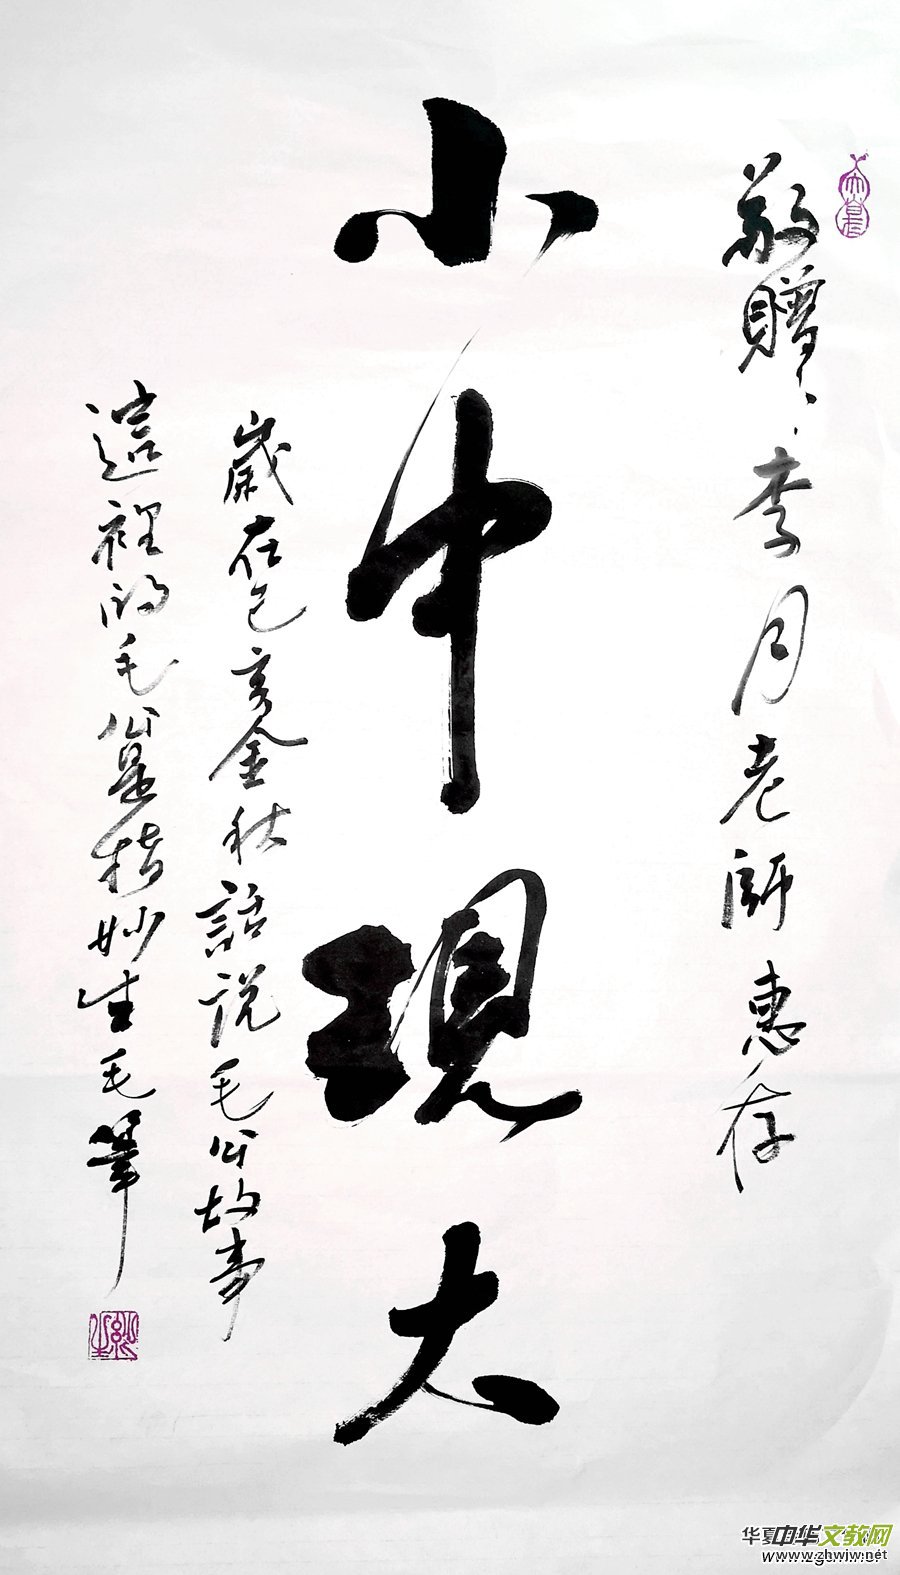 敬贈李月老師惠存
小中現大
歲在己亥金秋話說毛公故事
這裡的毛公是指妙生毛筆
中华文教网
www.zhwjw.net